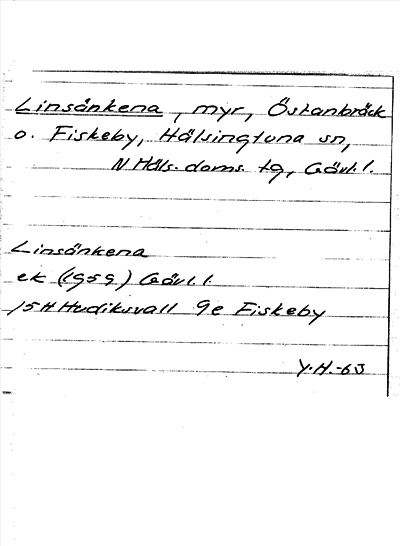 Linsänkena, myr, Östanbräck
o. Fiskeby, Hälsingtuna sn,
N. Häls. doms. tg, Gävl. l.
Linsänkena
ek (1959) Gävl. l.
15H Hudiksvall 9e Fiskeby
Y.H.-63